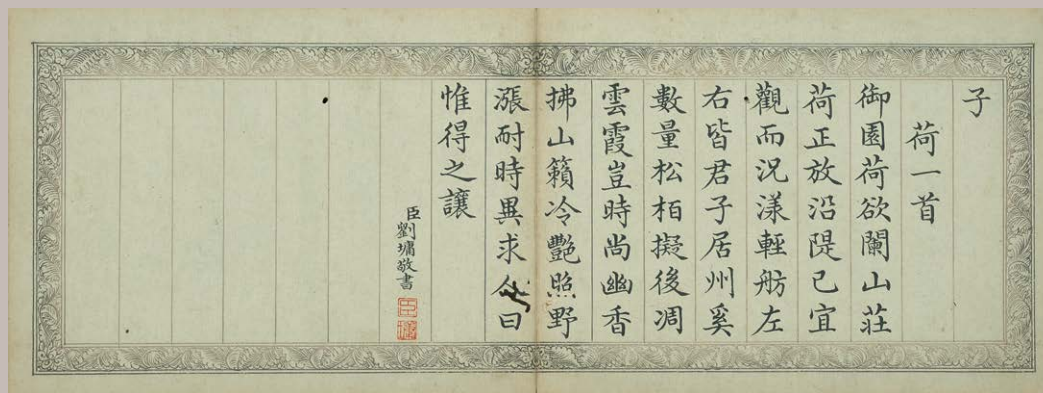 子
荷一首
御園荷欲闌山莊
荷正放沿隄已宜
觀而況漾輕舫左
右皆君子居州奚
數量松柏擬後凋
雲霞豈時尚幽香
拂山籟冷艷照野
漲耐時異求曰
惟得之讓
臣劉墉敬書
臣墉